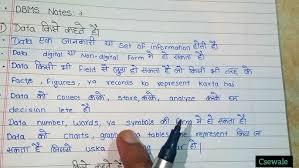 DBMS Notes :
① Data किसे कहते हैं
Data एक जानकारी या Set of information होती है
Data digital या Non-digital Form में हो सकता है
Data किसी भी field से जुड़ा हो सकता है जो किसी भी तरह के
Facts, Figures, या records को represent करता है
Data को collect करके, store करके, analyze करके हम
decision लेते हैं
Data number, words, या symbols की में हो सकता है
Data को charts, graph tables represent किया जा
सकता है जिससे उसका हो।
कहते हैं
Csewale